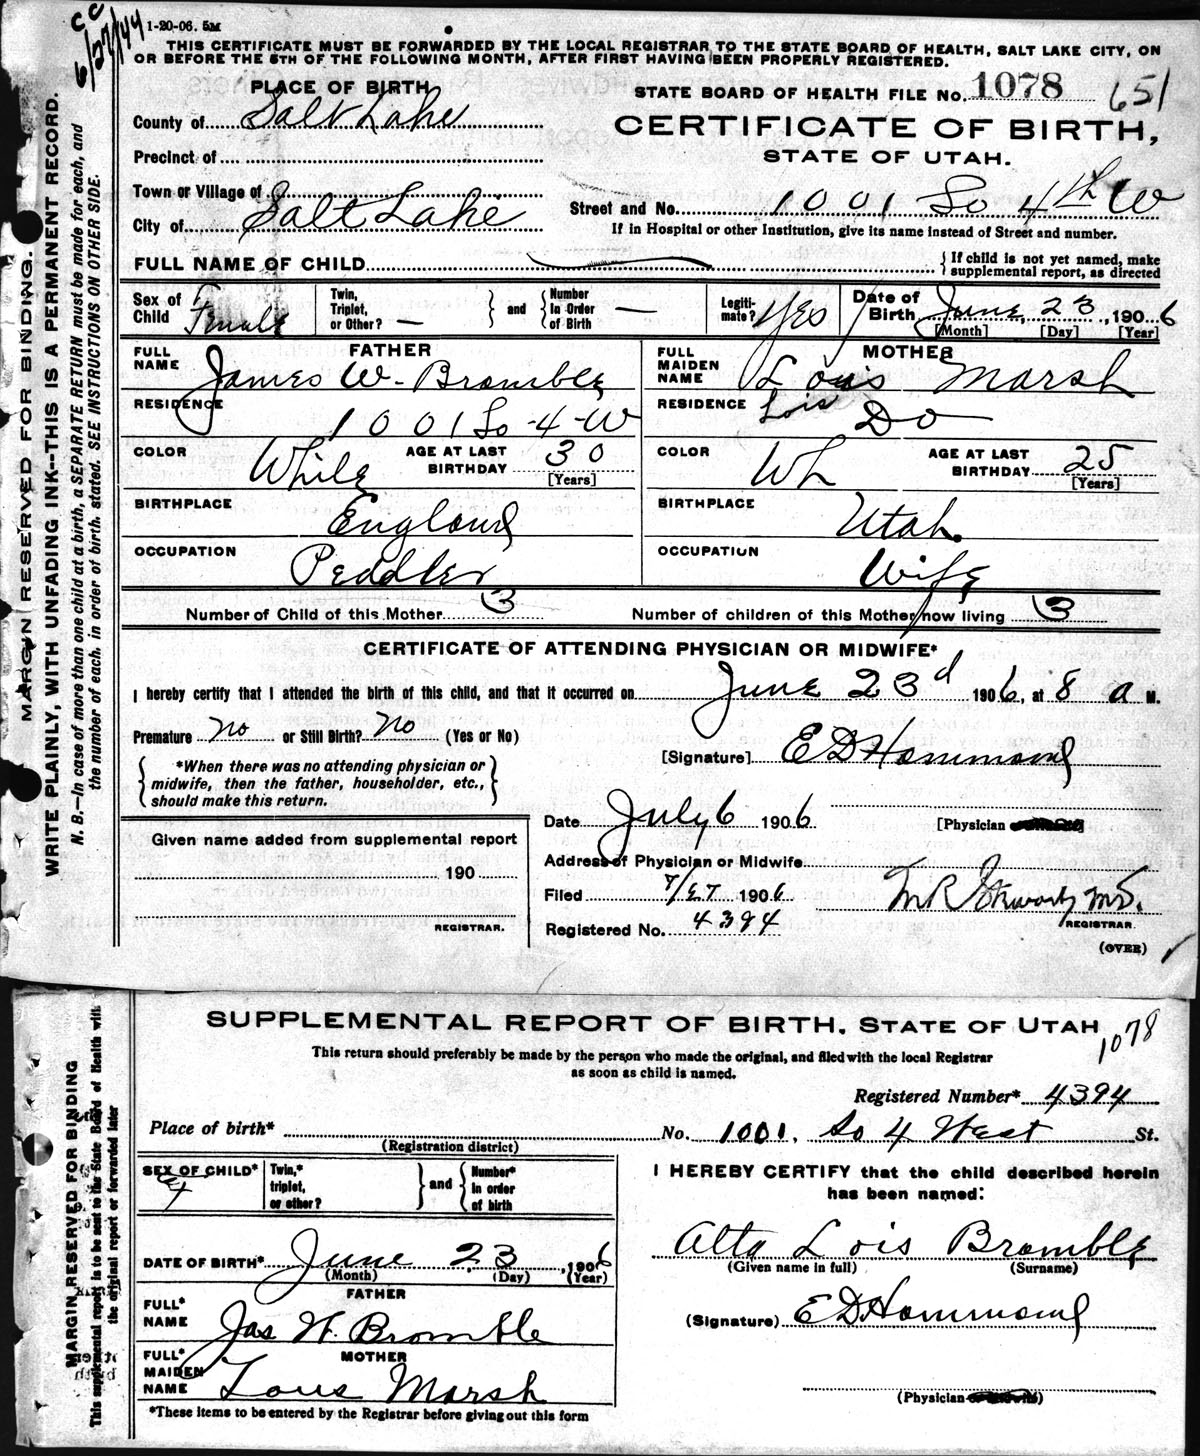 CC
6/27/44
1-20-06. 5M
THIS CERTIFICATE MUST BE FORWARDED BY THE LOCAL REGISTRAR TO THE STATE BOARD OF HEALTH, SALT LAKE CITY, ON
OR BEFORE THE 5TH OF THE FOLLOWING MONTH, AFTER FIRST HAVING BEEN PROPERLY REGISTERED.
MARGIN RESERVED FOR BINDING.
WRITE PLAINLY, WITH UNFADING INK--THIS IS A PERMANENT RECORD.
N. B.—In case of more than one child at a birth, a SEPARATE RETURN must be made for each, and
the number of each, in order of birth, stated. SEE INSTRUCTIONS ON OTHER SIDE.
PLACE OF BIRTH
STATE BOARD OF HEALTH FILE No. 1078 651
County of Salt Lake
CERTIFICATE OF BIRTH,
STATE OF UTAH.
Precinct of
Town or Village of
City of Salt Lake
Street and No. 1001 So 4th W
If in Hospital or other Institution, give its name instead of Street and number.
FULL NAME OF CHILD
If child is not yet named, make
supplemental report, as directed
Sex of Child Female
Twin, Triplet, or Other? — and Number In Order of Birth —
Legiti-mate? Yes
Date of Birth June 23, 1906
[Month] [Day] [Year]
FATHER
FULL NAME James W. Bromble
RESIDENCE 1001 So-4-W
COLOR White AGE AT LAST BIRTHDAY 30
[Years]
BIRTHPLACE England
OCCUPATION Peddler
MOTHER
FULL MAIDEN NAME Lois Marsh
Lois
RESIDENCE Do
COLOR Wh AGE AT LAST BIRTHDAY 25
[Years]
BIRTHPLACE Utah.
OCCUPATION Wife
Number of Child of this Mother 3 Number of children of this Mother now living 3
CERTIFICATE OF ATTENDING PHYSICIAN OR MIDWIFE*
I hereby certify that I attended the birth of this child, and that it occurred on June 23d 1906, at 8 a M.
Premature no or Still Birth? no (Yes or No)
[Signature] E D Hammond
*When there was no attending physician or
midwife, then the father, householder, etc.,
should make this return.
Date July 6 1906
[Physician
Given name added from supplemental report
190
REGISTRAR.
Address of Physician or Midwife
Filed 7/27 1906
Registered No. 4394
M.D.
REGISTRAR.
(OVER)
MARGIN RESERVED FOR BINDING
This supplemental report is to be sent to the State Board of Health with
the original report or forwarded later
SUPPLEMENTAL REPORT OF BIRTH, STATE OF UTAH
1078
This return should preferably be made by the person who made the original, and filed with the local Registrar
as soon as child is named.
Registered Number* 4394
Place of birth* No. 1001. So 4 West St.
(Registration district)
SEX OF CHILD* f
Twin,* triplet, or other? and Number* In order of birth
DATE OF BIRTH* June 23, 1906
(Month) (Day) (Year)
FATHER
FULL* NAME Jas W. Bromble
MOTHER
FULL* MAIDEN NAME Lous Marsh
*These items to be entered by the Registrar before giving out this form
I HEREBY CERTIFY that the child described herein
has been named:
Alta Lois Bromble
(Given name in full) (Surname)
(Signature) E D Hammond
(Physician